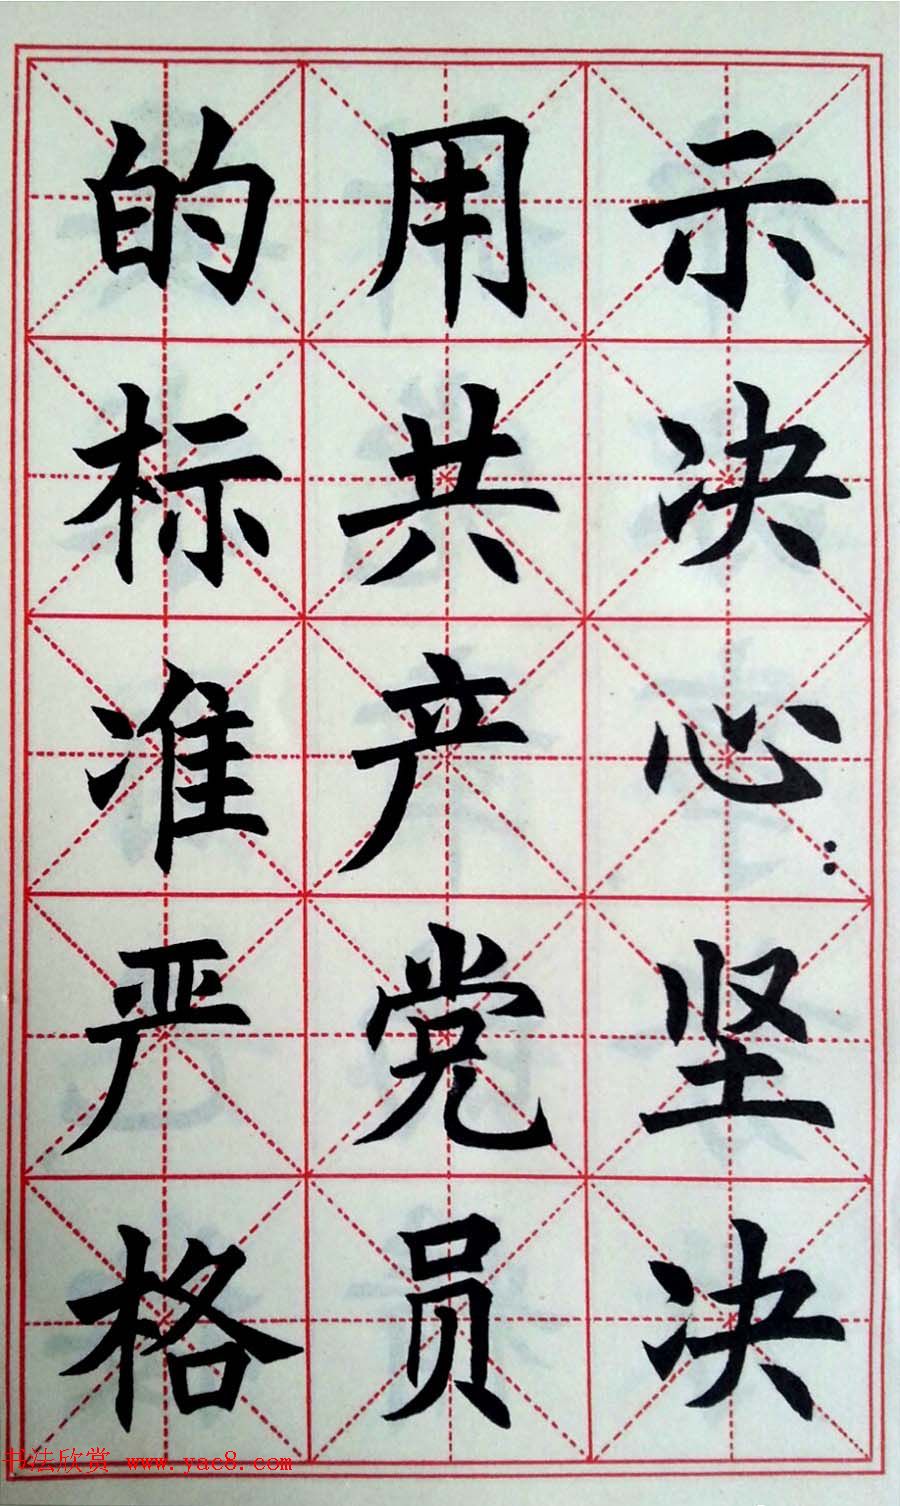 示决心：坚决
用共产党员
的标准严格
书法欣赏 www.yac8.com